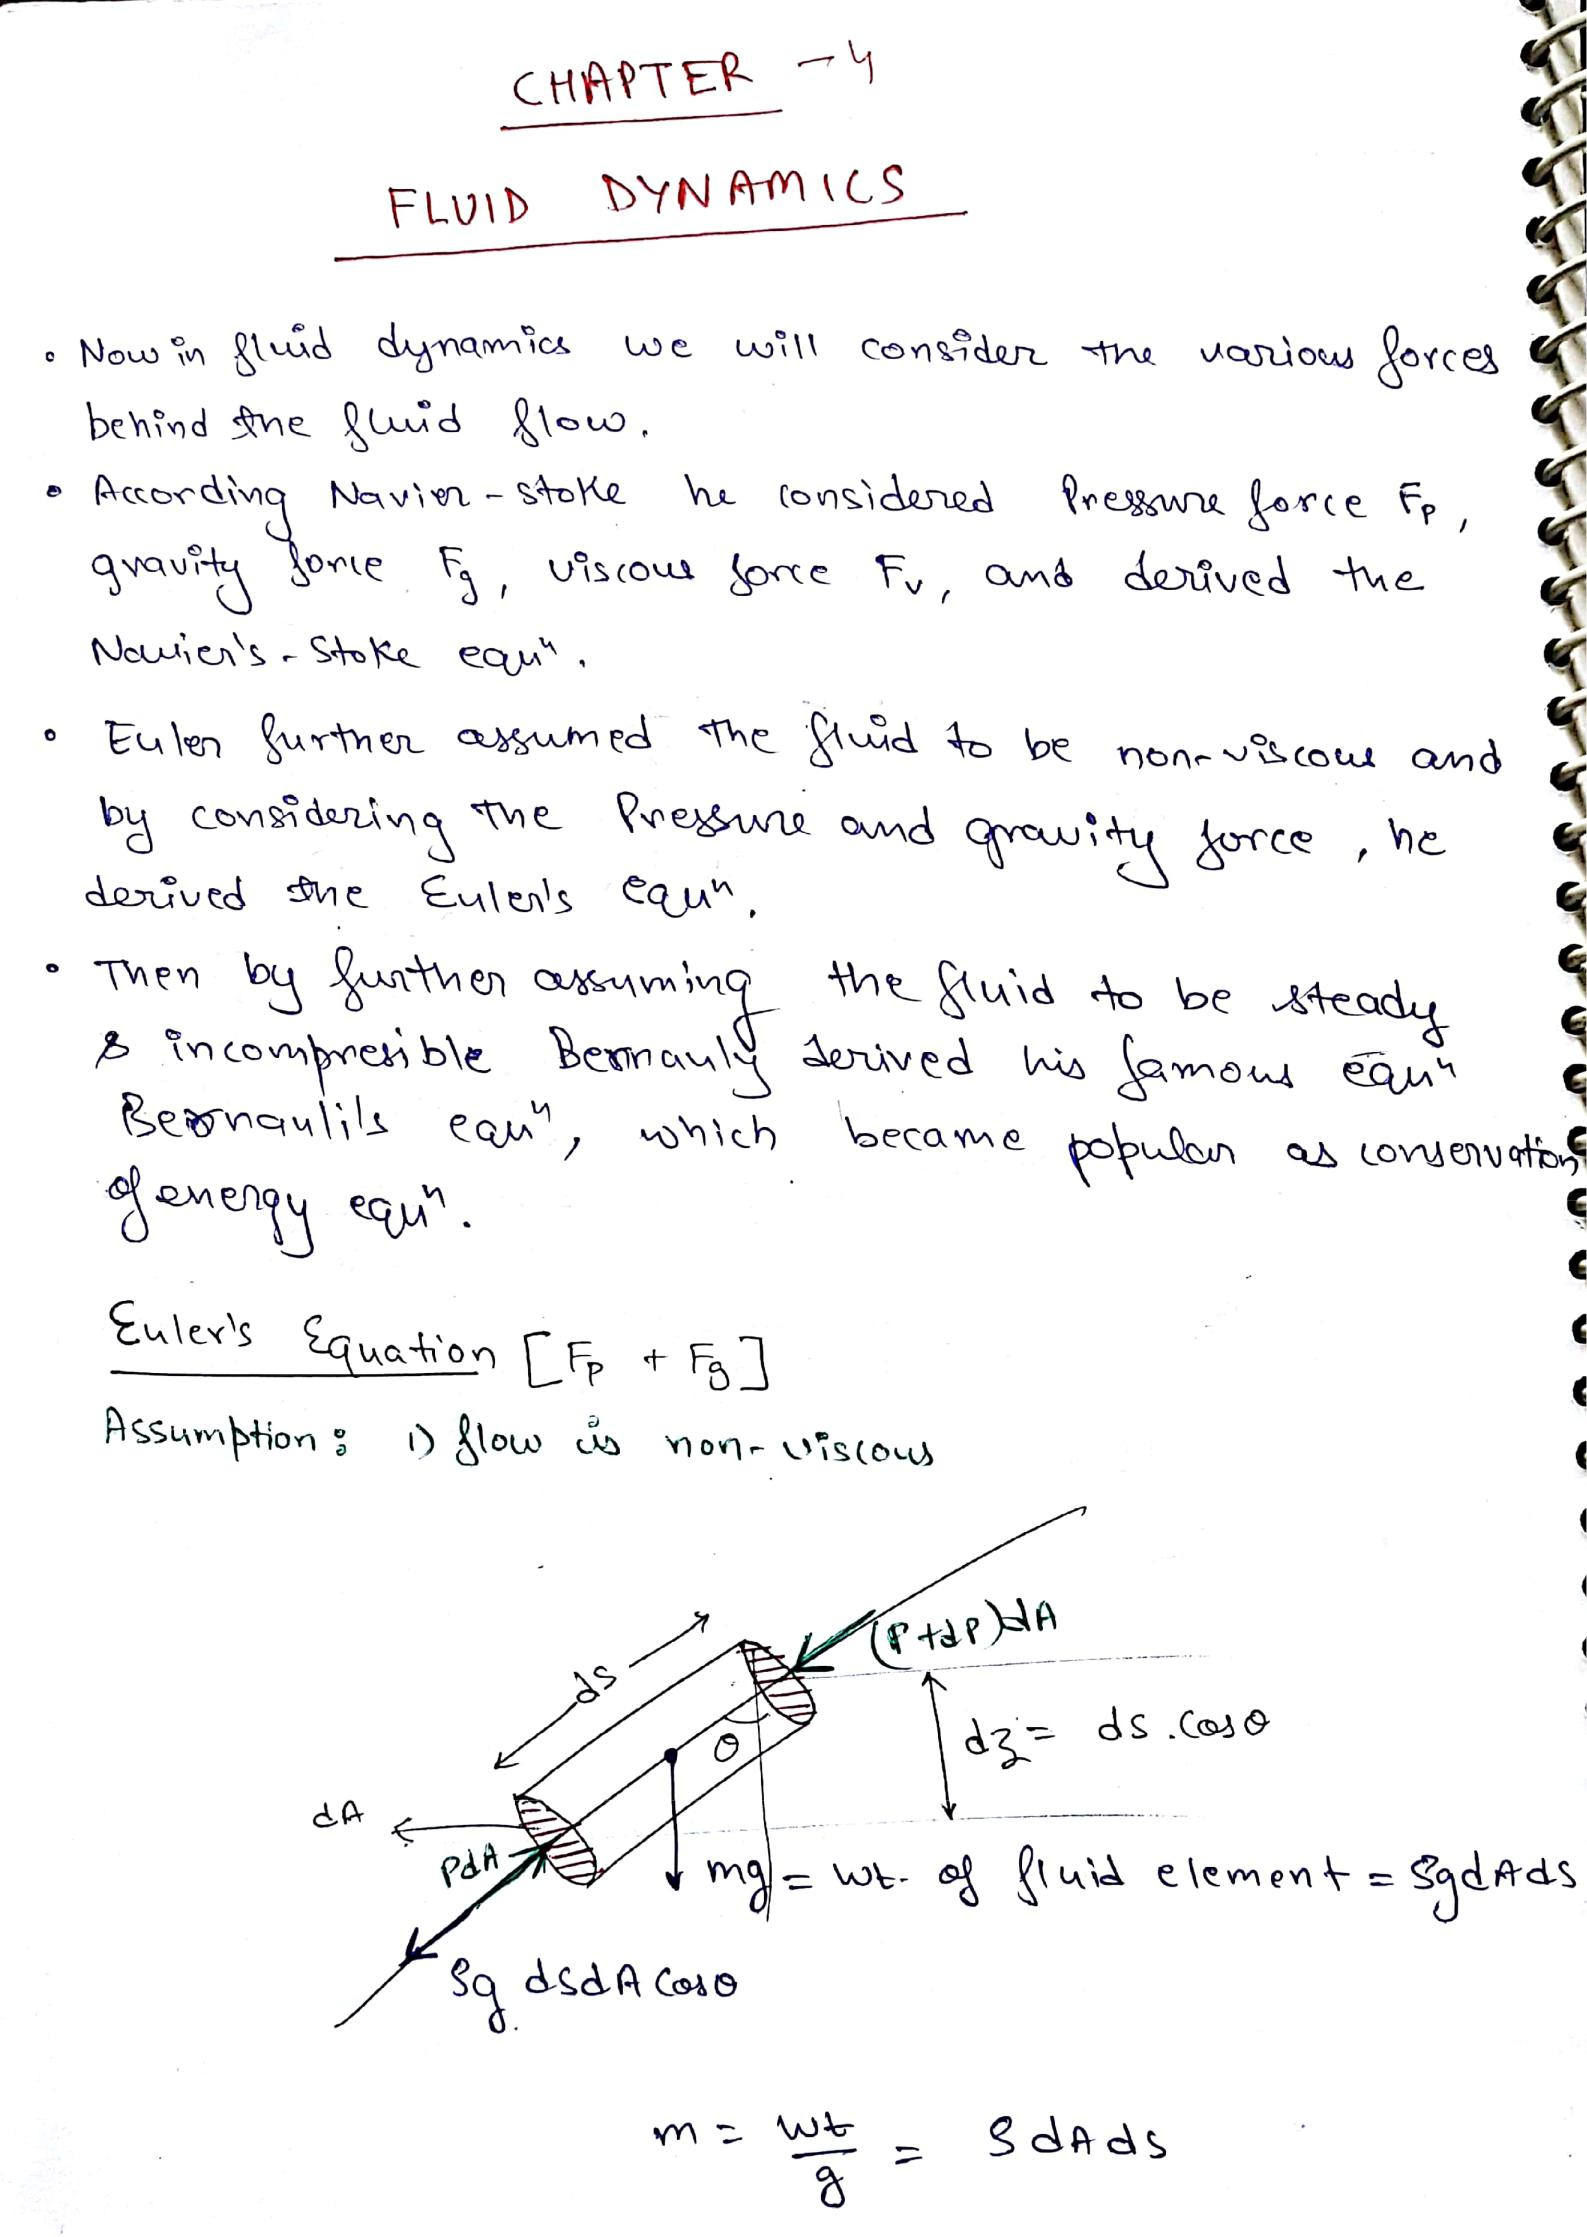 CHAPTER - 4
FLUID DYNAMICS
• Now in fluid dynamics we will consider the various forces
behind the fluid flow.
• According Navier - Stoke he considered Pressure force Fp,
gravity force Fg, viscous force Fv, and derived the
Navier's - Stoke equⁿ.
• Euler further assumed the fluid to be non-viscous and
by considering the Pressure and gravity force, he
derived the Euler's equⁿ.
• Then by further assuming the fluid to be steady
& incompresible Bernauly derived his famous equⁿ
Bernaulil's equⁿ, which became popular as conservation
of energy equⁿ.
Euler's Equation [Fp + Fg]
Assumption: 1) flow is non-viscous
(P+dP)dA
ds
dz = ds.Cosθ
θ
dA
PdA
mg = wt. of fluid element = ρgdAds
ρg dsdA Cosθ
m = wt/g = ρdAds